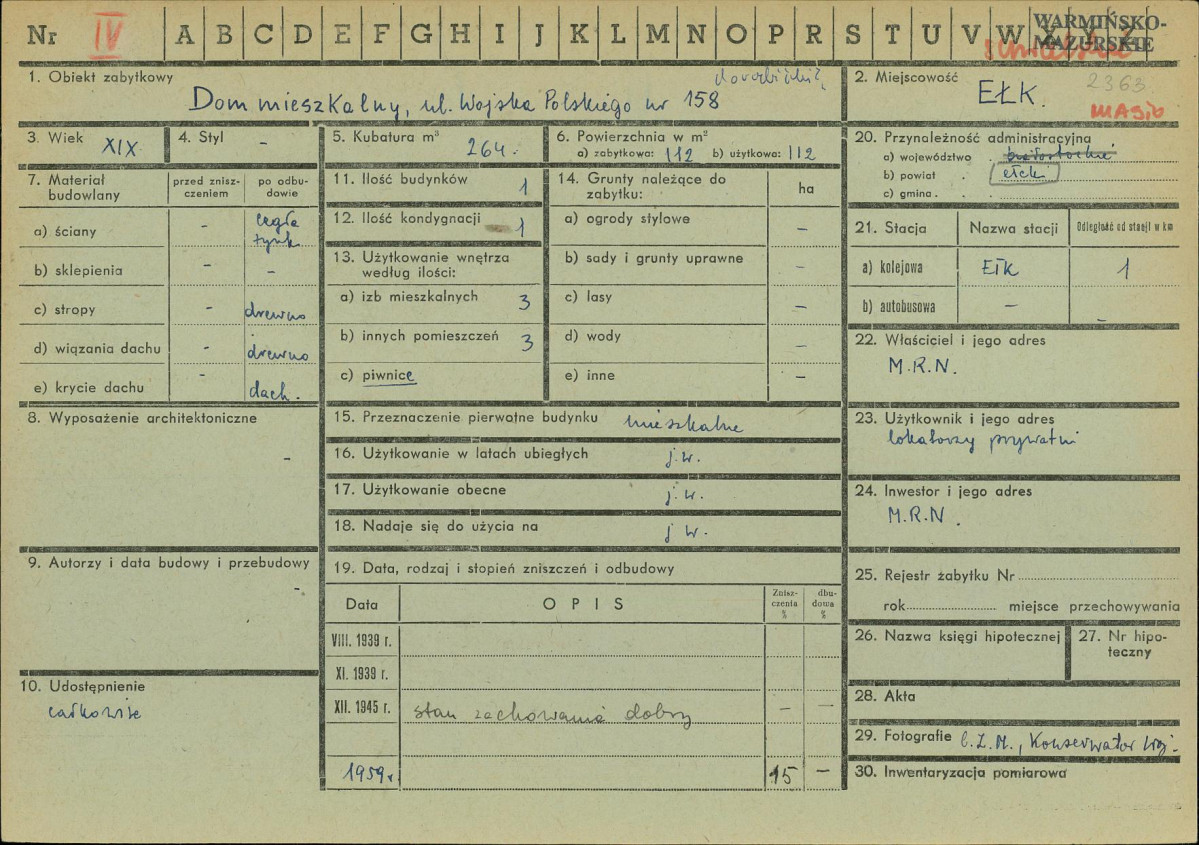 Nr IV A B C D E F G H I J K L M N O P R S T U V W X Y Z
WARMIŃSKO-
MAZURSKIE
1. Obiekt zabytkowy
Dom mieszkalny, ul. Wojska Polskiego nr 158
2. Miejscowość
EŁK.
2363
3. Wiek XIX
4. Styl -
5. Kubatura m³ 264.
6. Powierzchnia w m²
a) zabytkowa: 112 b) użytkowa: 112
20. Przynależność administracyjna
a) województwo białostockie
b) powiat ełck
c) gmina
7. Materiał budowlany
przed zniszczeniem
po odbudowie
a) ściany - cegła tynk
b) sklepienia - -
c) stropy - drewno
d) wiązania dachu - drewno
e) krycie dachu - dach.
11. Ilość budynków 1
12. Ilość kondygnacji 1
13. Użytkowanie wnętrza
według ilości:
a) izb mieszkalnych 3
b) innych pomieszczeń 3
c) piwnice
14. Grunty należące do
zabytku:
ha
a) ogrody stylowe -
b) sady i grunty uprawne -
c) lasy -
d) wody -
e) inne -
21. Stacja Nazwa stacji Odległość od stacji w km
a) kolejowa Ełk 1
b) autobusowa - -
22. Właściciel i jego adres
M.R.N.
8. Wyposażenie architektoniczne
-
15. Przeznaczenie pierwotne budynku mieszkalne
16. Użytkowanie w latach ubiegłych j.w.
17. Użytkowanie obecne j.w.
18. Nadaje się do użycia na j w.
23. Użytkownik i jego adres
lokatorzy prywatni
24. Inwestor i jego adres
M.R.N.
9. Autorzy i data budowy i przebudowy
-
10. Udostępnienie
całkowite
19. Data, rodzaj i stopień zniszczeń i odbudowy
Data OPIS Zniszczenia % dbudowa %
VIII. 1939 r.
XI. 1939 r.
XII. 1945 r. stan zachowania dobry - -
1959 r 15 -
25. Rejestr zabytku Nr
rok miejsce przechowywania
26. Nazwa księgi hipotecznej
27. Nr hipoteczny
28. Akta
29. Fotografie C.Z.M., Konserwator Woj.
30. Inwentaryzacja pomiarowa